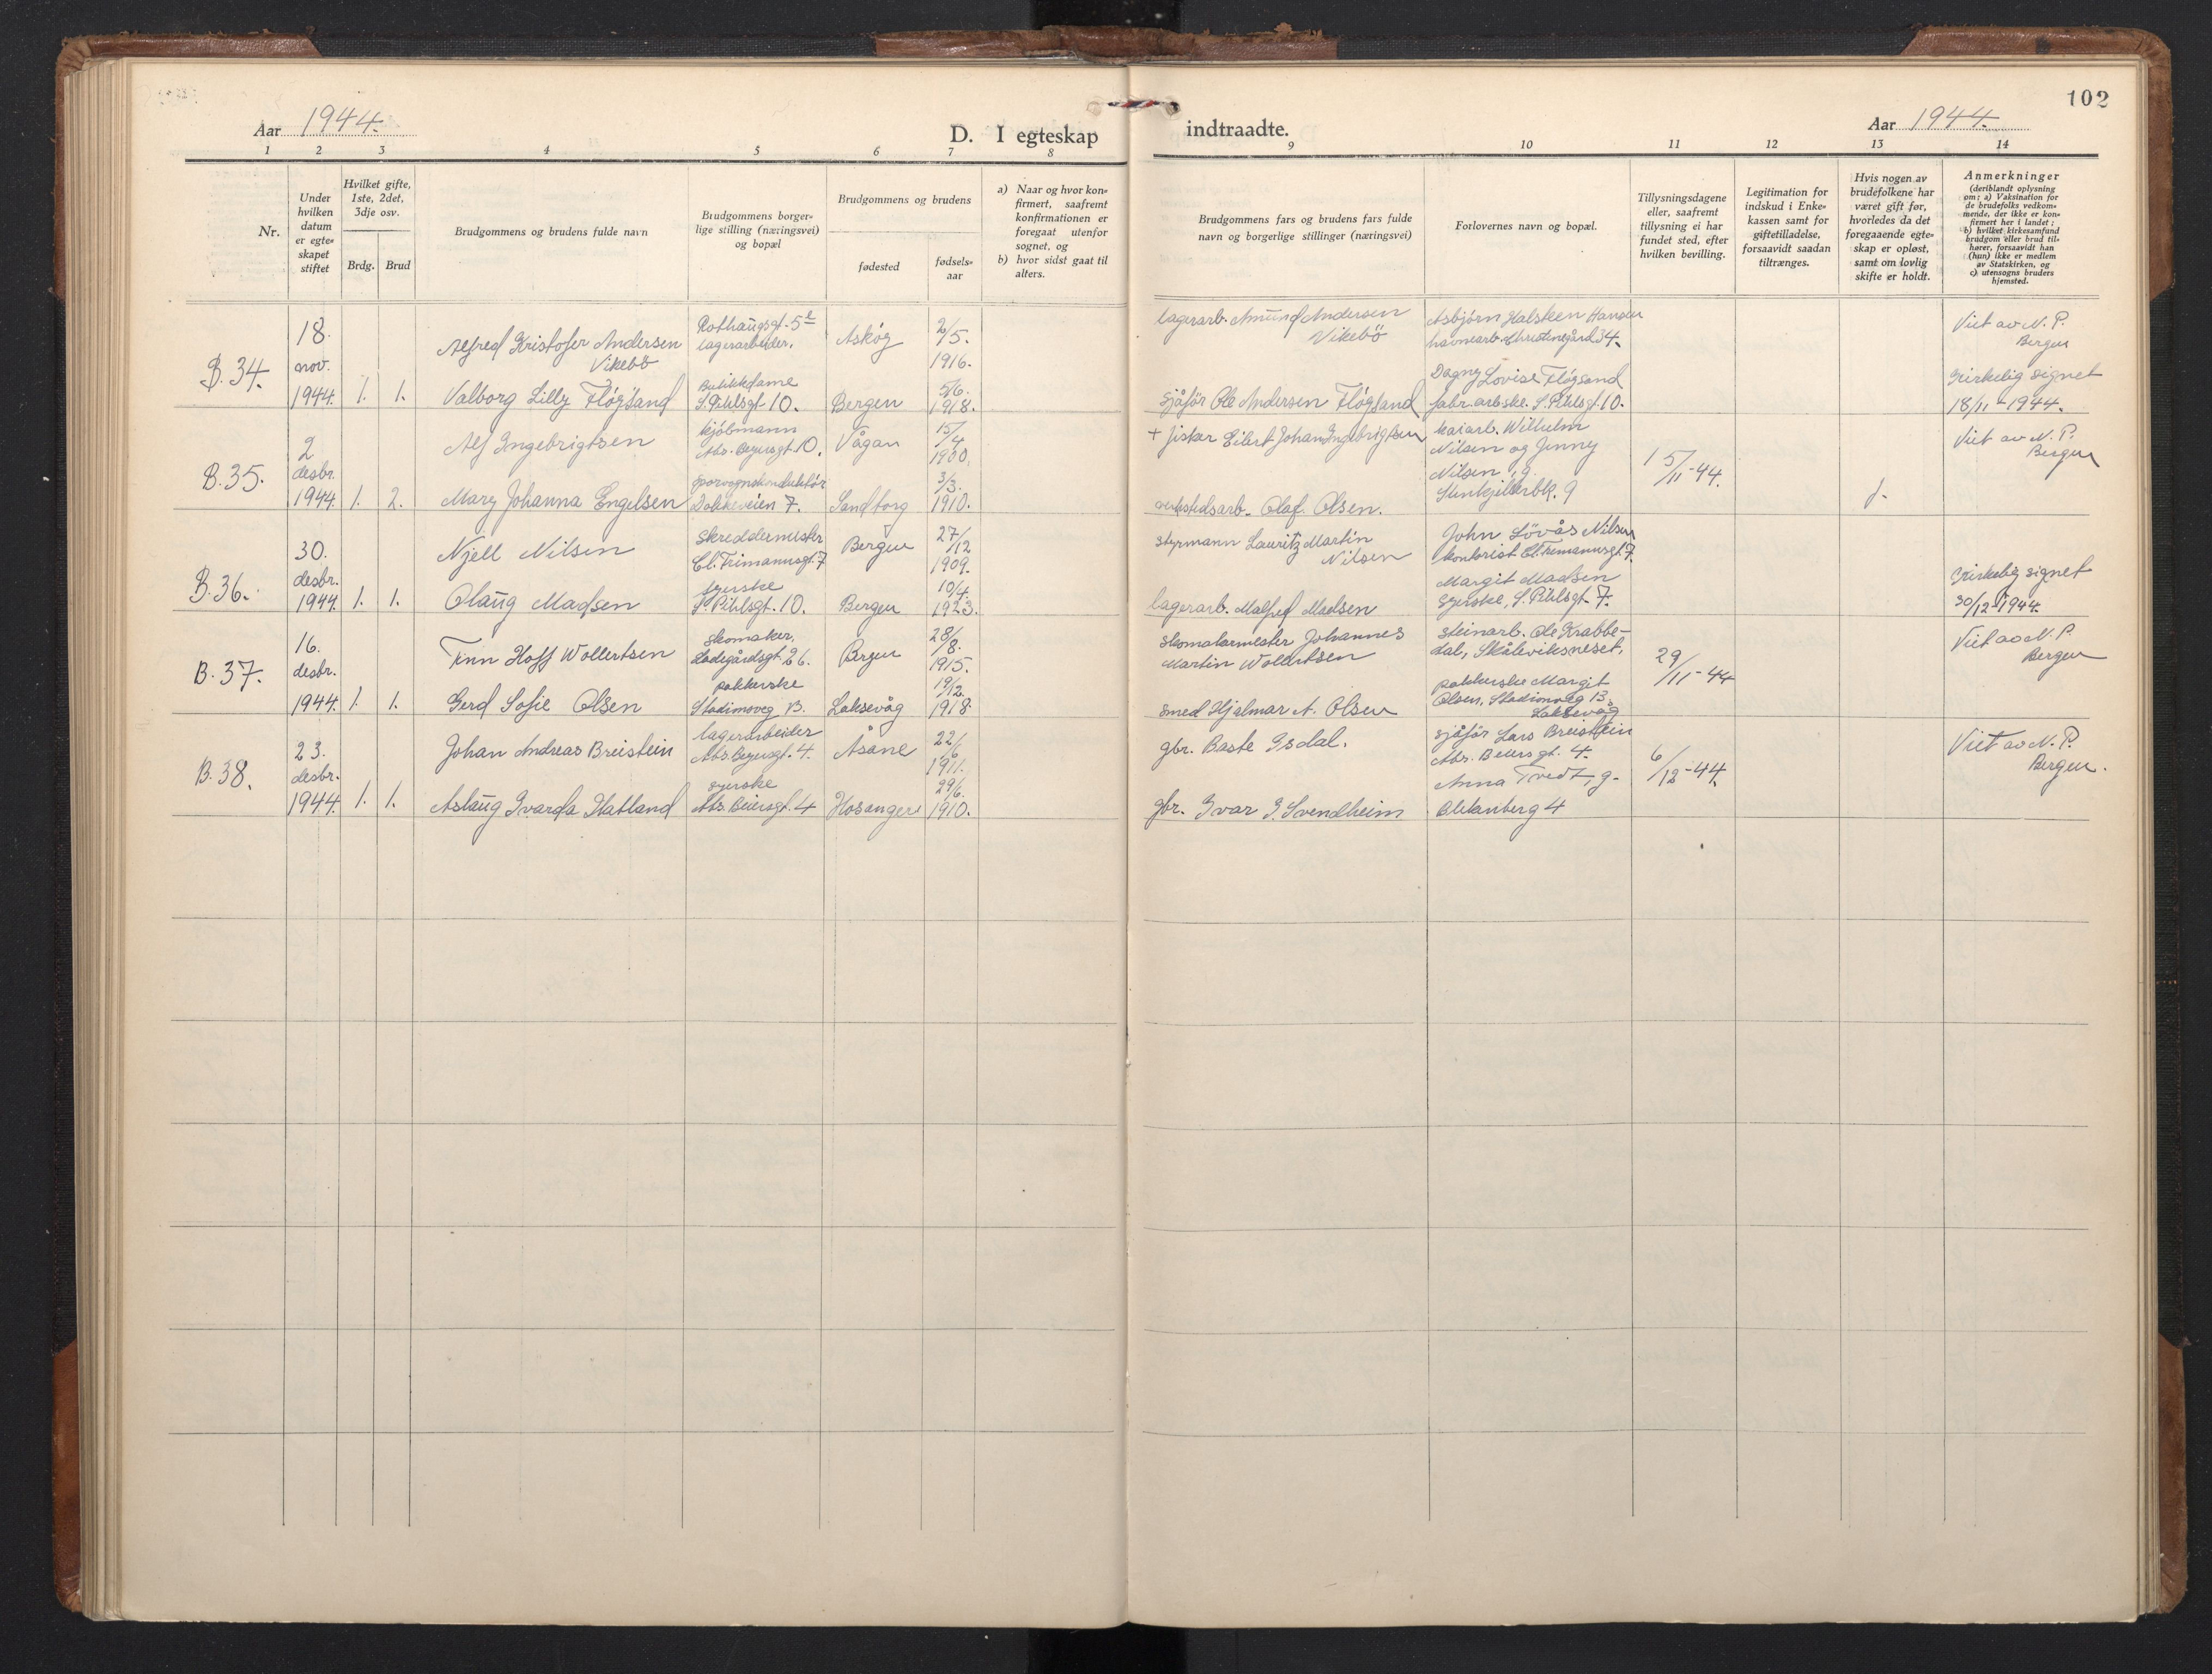 102
Aar 1944.
D. I egteskap
indtraadte.
Aar 1944.
1 2 3 4 5 6 7 8 9 10 11 12 13 14
Nr.
Under hvilken datum er egteskapet stiftet
Hvilket gifte, 1ste, 2det, 3dje osv.
Brdg. Brud
Brudgommens og brudens fulde navn
Brudgommens borgerlige stilling (næringsvei) og bopæl
Brudgommens og brudens
fødested
fødselsaar
a) Naar og hvor konfirmert, saafremt konfirmationen er foregaat utenfor sognet, og
b) hvor sidst gaat til alters.
Brudgommens fars og brudens fars fulde navn og borgerlige stillinger (næringsvei)
Forlovernes navn og bopæl.
Tillysningsdagene eller, saafremt tillysning ei har fundet sted, efter hvilken bevilling.
Legitimation for indskud i Enkekassen samt for giftetilladelse, forsaavidt saadan tiltrænges.
Hvis nogen av brudefolkene har været gift før, hvorledes da det foregaaende egteskap er opløst, samt om lovlig skifte er holdt.
Anmerkninger
(deriblandt oplysning om: a) Vaksination for de brudefolks vedkommende, der ikke er konfirmert her i landet; b) hvilket kirkesamfund brudgom eller brud tilhører, forsaavidt han (hun) ikke er medlem av Statskirken, og c) utensogns bruders hjemsted.
B. 34.
18. nov. 1944. 1. 1.
Alfred Kristofer Andersen Vikebö
Rothaugsgt. 5 e
lagerarbeider.
Askøy
2/5. 1916.
lagerarb. Amund Andersen Vikebö
Asbjørn Halsteen Hansen
havnearb. Christinegård 34.
Viet av N. P. Bergen
Valborg Lilly Fløysand
Butikkdame
S. Pihlsgt. 10.
Bergen
5/6. 1918.
sjåför Ole Andersen Fløysand
Dagny Lovise Fløysand
fabr. arbske. S. Pihlsgt. 10.
Kirkelig signet
18/11 - 1944.
B. 35.
2 desbr. 1944. 1. 2.
Alf Ingebrigtsen
kjöbmann
Abs. Beyersgt. 10.
Vågan
15/4 1900.
+ fisker Eilert Johan Ingebrigtsen
kaiarb. Wilhelm
Nilsen og Jenny
Nilsen, g.
15/11-44.
Viet av N. P. Bergen
Mary Johanna Engelsen
sporvognskonduktör
Dokkeveien 7.
3/3. 1910.
verkstedsarb. Olaf. Olsen.
B. 36.
30. desbr. 1944. 1. 1.
Njell Nilsen
Skreddermester
Bergen
27/12 1909.
styrmann Lauritz Martin Nilsen
John Lövås Nilsen
kontorist
Olaug Madsen
syerske
S. Pihlsgt. 10.
Bergen
10/4. 1923.
lagerarb. Malfred Madsen
Margit Madsen
syerske, S. Pihlsgt. 7.
Kirkelig signet
30/12-1944.
B. 37.
16. desbr. 1944. 1. 1.
Finn Hoff Wollertsen
Skomaker,
Ladegårdsgt. 26.
Bergen
28/8. 1915.
skomakermester Johannes
Martin Wollertsen
steinarb. Ole Krabbedal, Skåleviksneset,
29/11-44
Viet av N. P. Bergen
Gerd Sofie Olsen
pakkerske
Stadionveg 13.
Laksevåg
19/12. 1918.
smed Hjalmar A. Olsen
pakkerske Margit
Olsen, Stadionveg 13,
Laksevåg
B. 38.
23. desbr. 1944. 1. 1.
Johan Andreas Breistein
lagerarbeider
Abs. Beyersgt. 4.
Åsane
22/6 1911.
gbr. Baste Isdal.
sjåför Lars Breistein
Abs. Beiersgt. 4.
6/12-44.
Viet av N. P. Bergen.
Aslaug Ivarda Hatland
syerske
Abs. Beiersgt. 4
Hosanger
29/6. 1910.
gbr. Ivar I. Svendheim
Anna Tvedt, g.